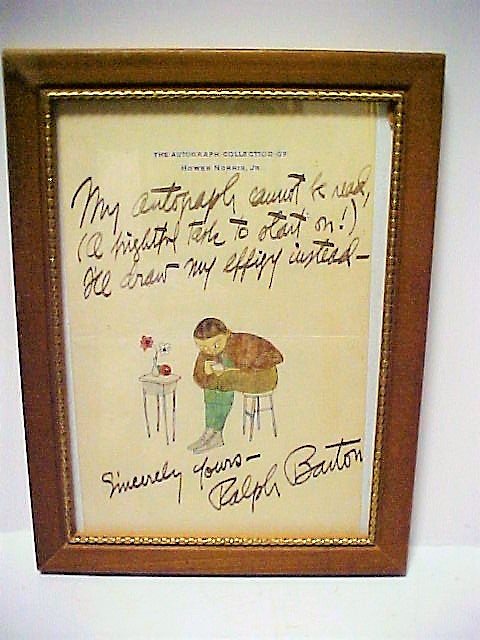 THE AUTOGRAPH COLLECTION OF
HOWES NORRIS, JR.
My autograph cannot be read,
(A frightful task to start on!)
I'll draw my effigy instead—
Sincerely yours—
Ralph Barton